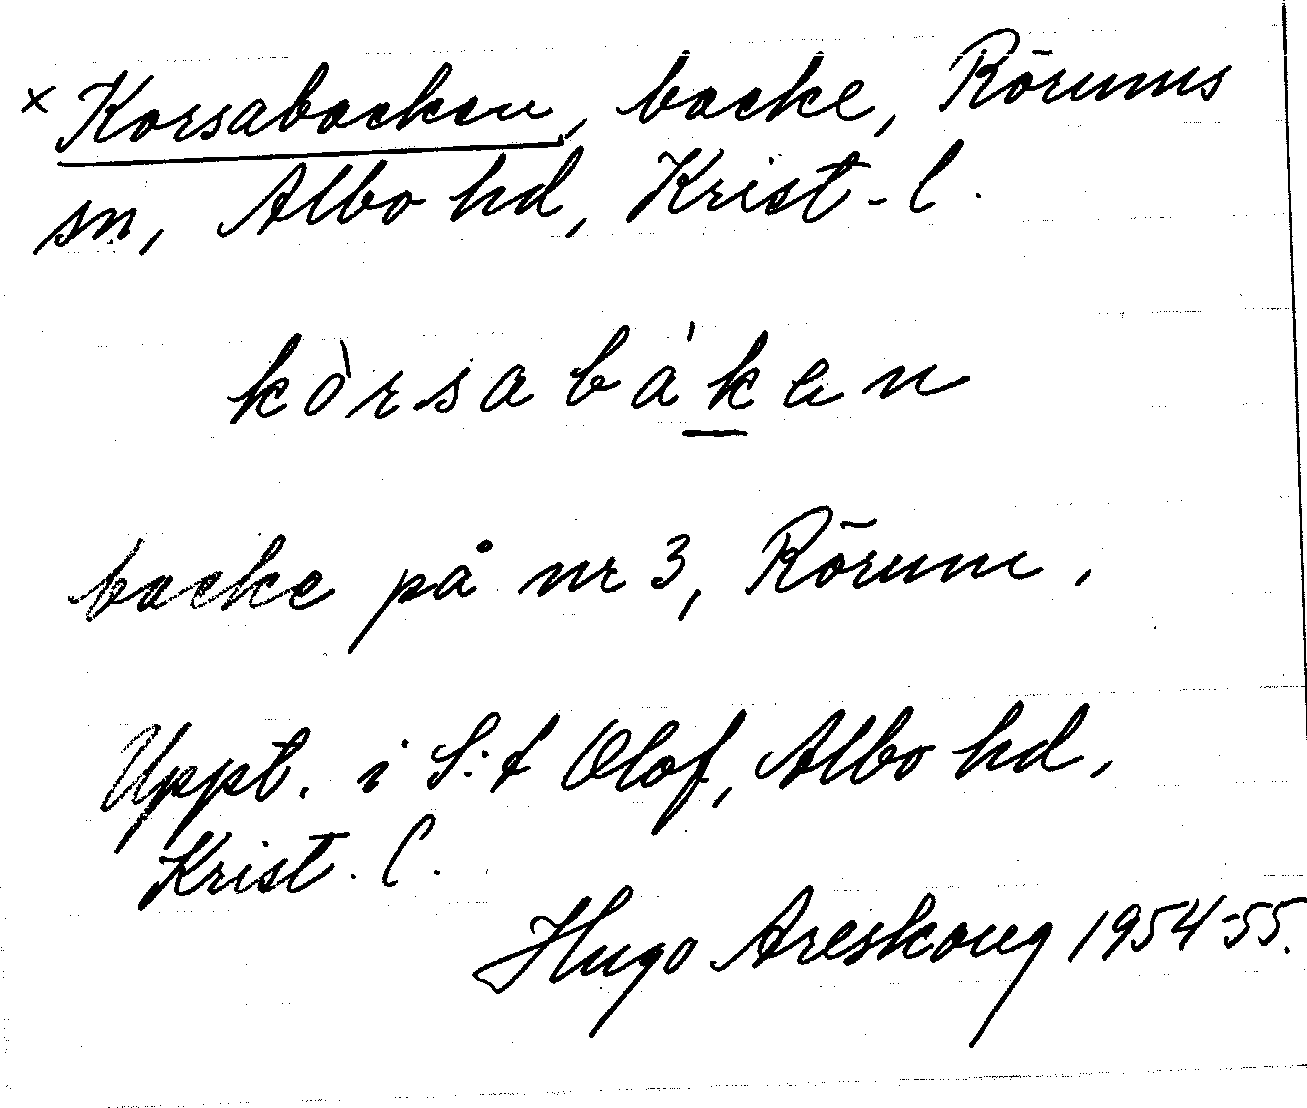 × Korsabacken, backe, Rörums
sn, Albo hd, Krist-l.
kòrsabáken
backe på nr 3, Rörum.
Uppt. i S:t Olof, Albo hd,
Krist. l.
Hugo Areskoug 1954-55.